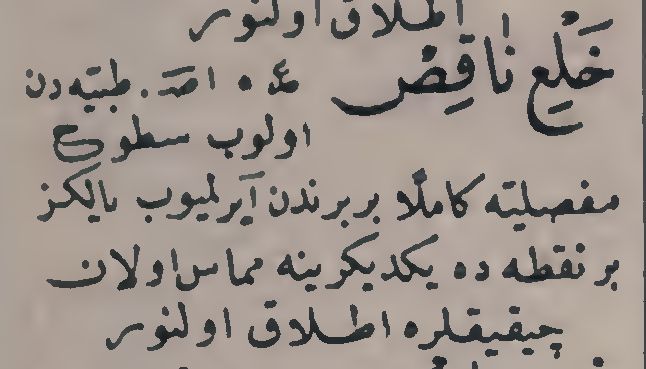 اطلاق اولنور
خَلْعِ نَاقِصْ
اولوب سطوح
مفصلیّه کاملًا بربرندن آیرلمیوب یالکز
بر نقطه ده یکدیکرینه مماس اولان
چیقیقلره اطلاق اولنور